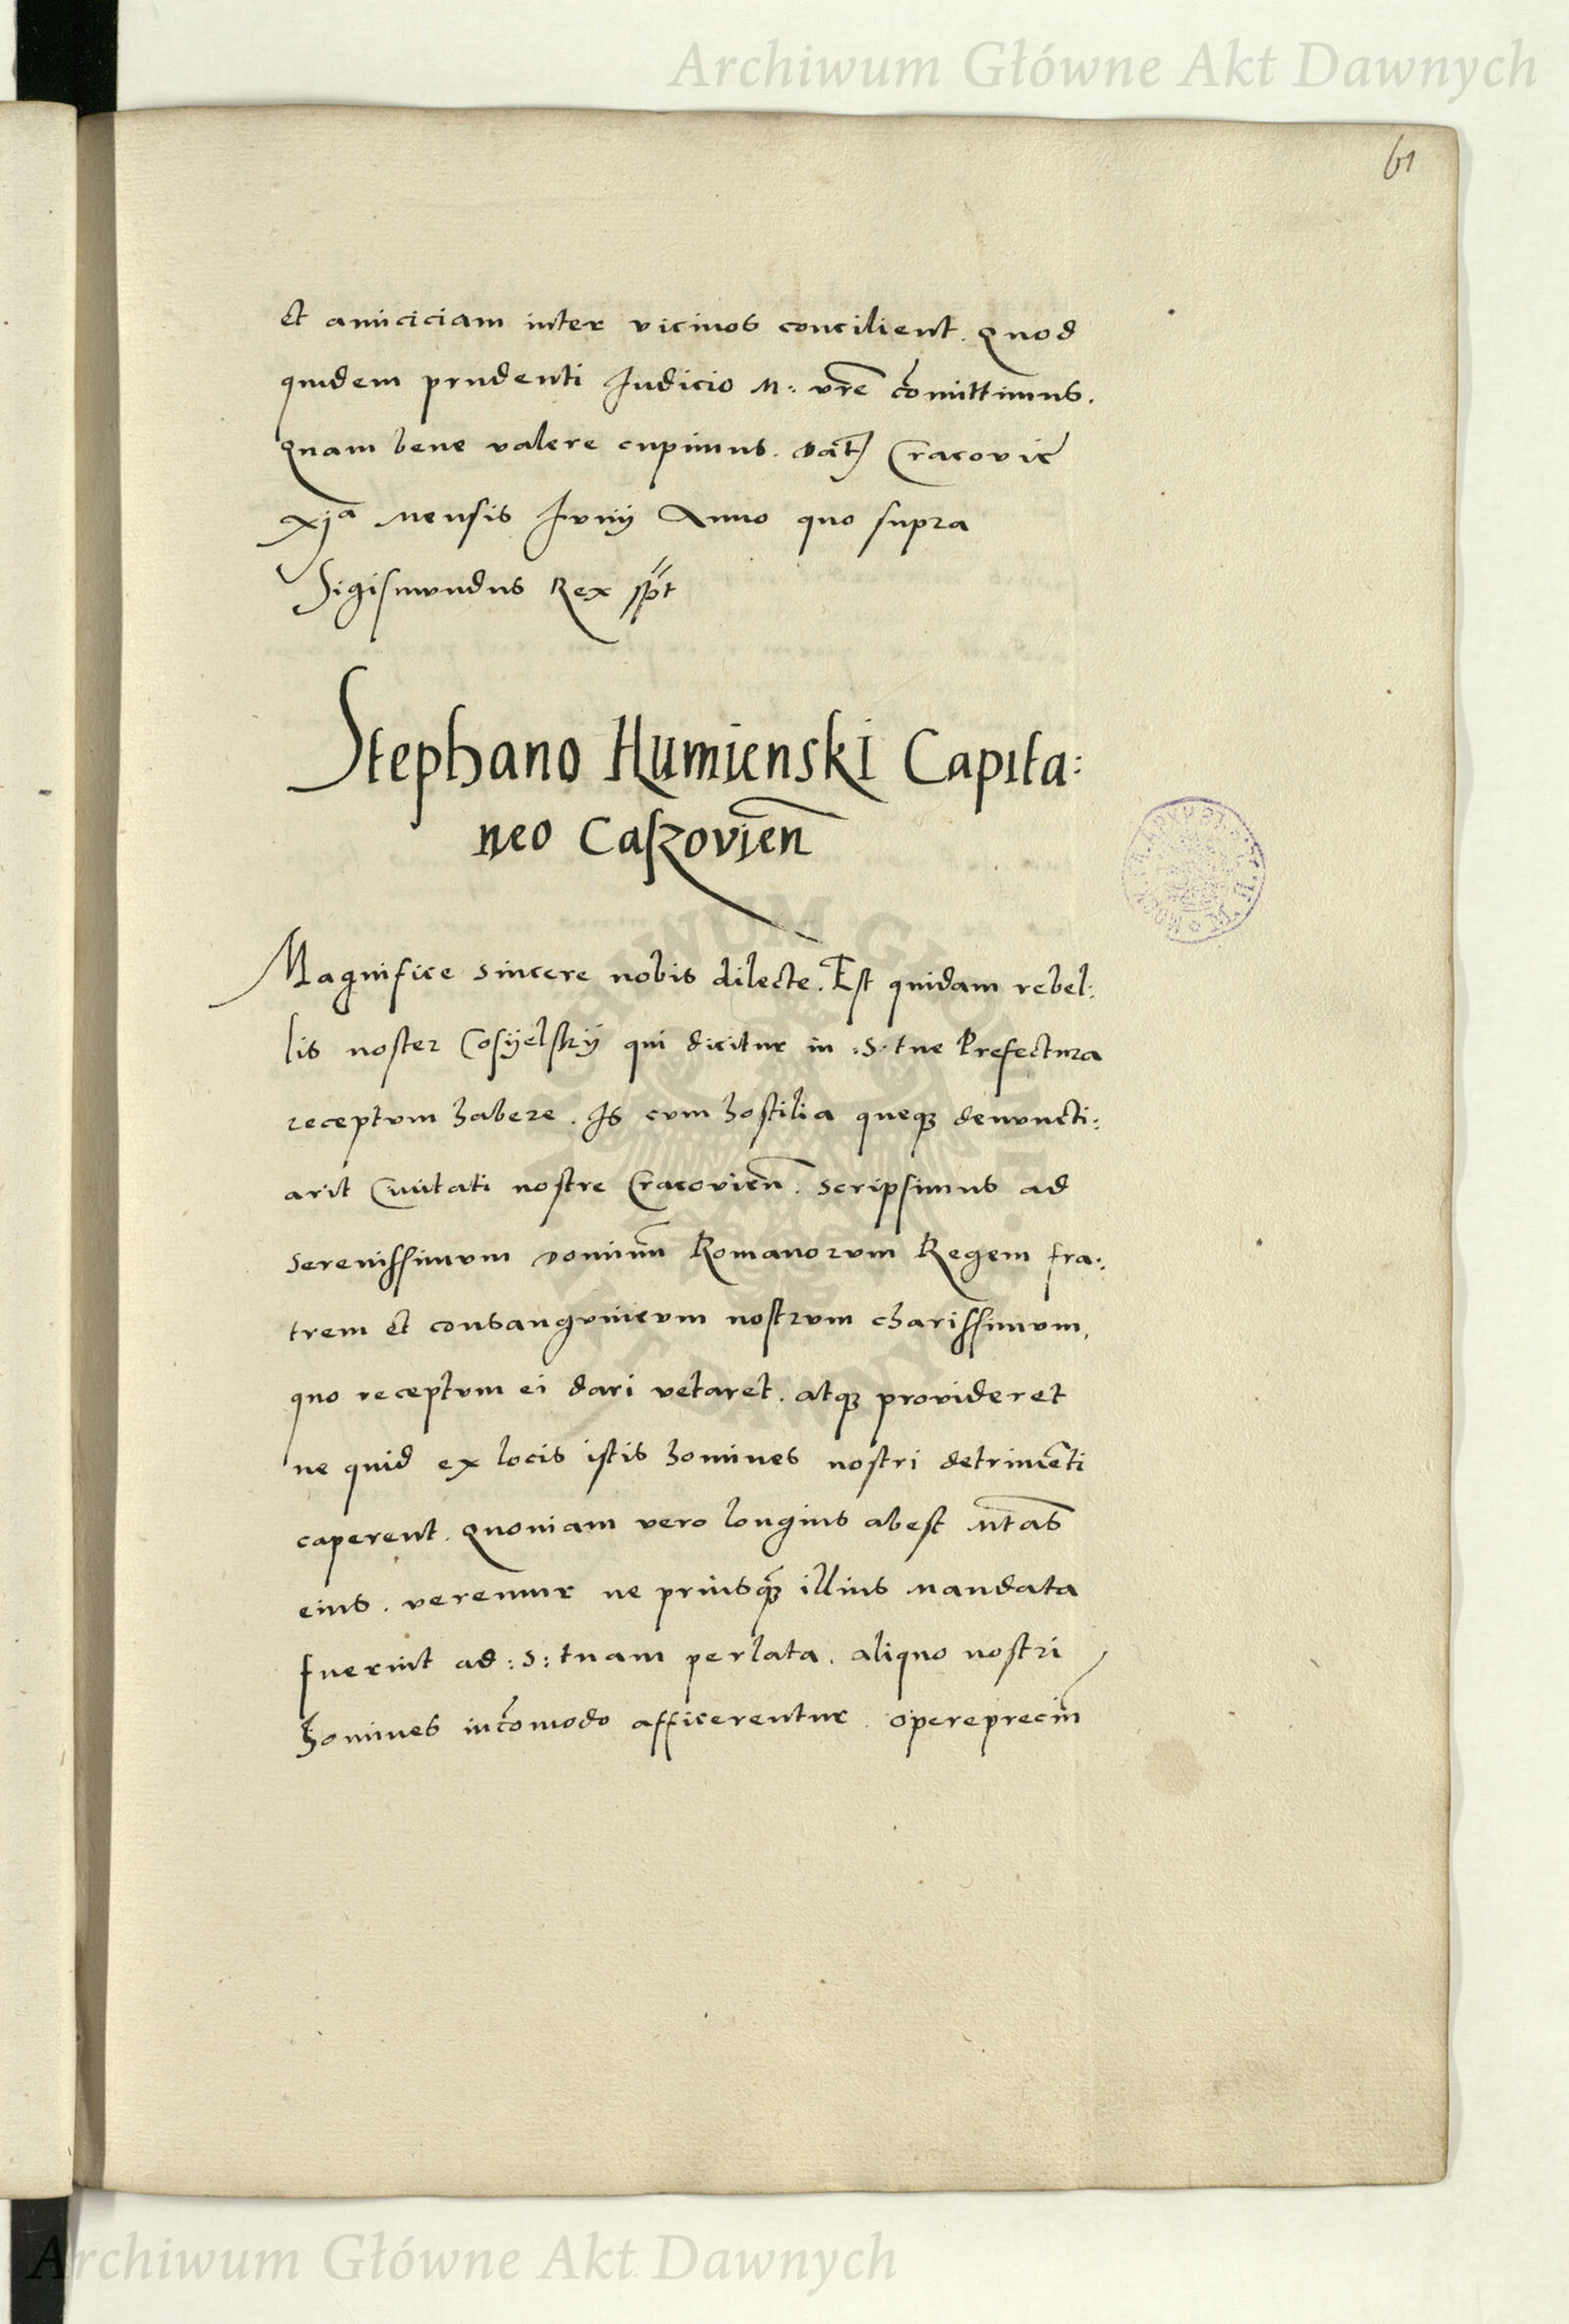 Archiwum Główne Akt Dawnych
61
et amiciciam inter vicinos concilient. Quod
quidem prudenti Iudicio M: vr̃e cõmittimus.
Quam bene valere cupimus. Dat̃ Cracovie
xjª mensis Iunij Anno quo supra
Sigismundus Rex sp̃t
Stephano Humienski Capita:
neo Caszovien̄
Magnifice sincere nobis dilecte. Est quidam rebel:
lis noster Cosyelsky qui dicitur in :S: tue Prefectura
receptum habere. Is cum hostilia queqз denuncti:
arit Civitati nostre Cracovien̄. scripsimus ad
Serenissimum dominū Romanorum Regem fra:
trem et consanguineum nostrum charissimum,
quo receptum ei dari vetaret. atqз provideret
ne quid ex locis istis homines nostri detrimēti
caperent. Quoniam vero longius abest Mtas̄
eius. veremur ne priusq̃з illius mandata
fuerint ad :S: tuam perlata. aliquo nostri
homines incōmodo afficerentur. opereprecīu
Archiwum Główne Akt Dawnych